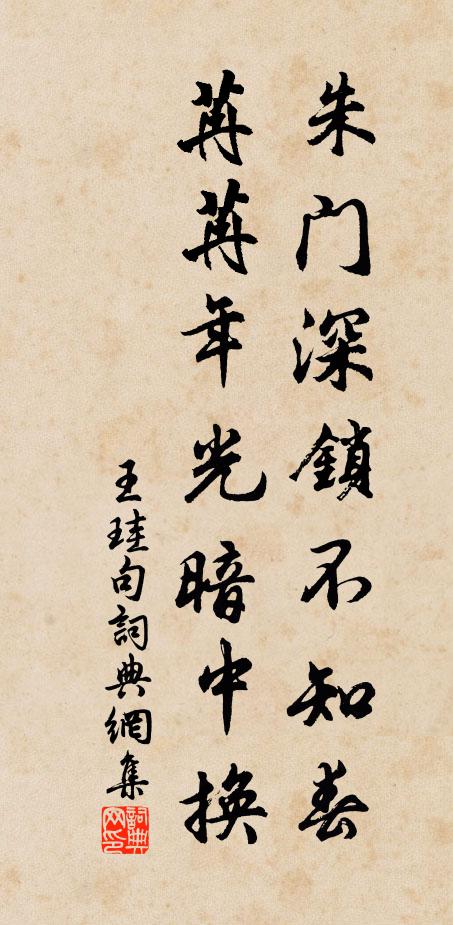 朱门深鎖不知春
苒苒年光暗中换
王珪句詞典網集
詞典网印